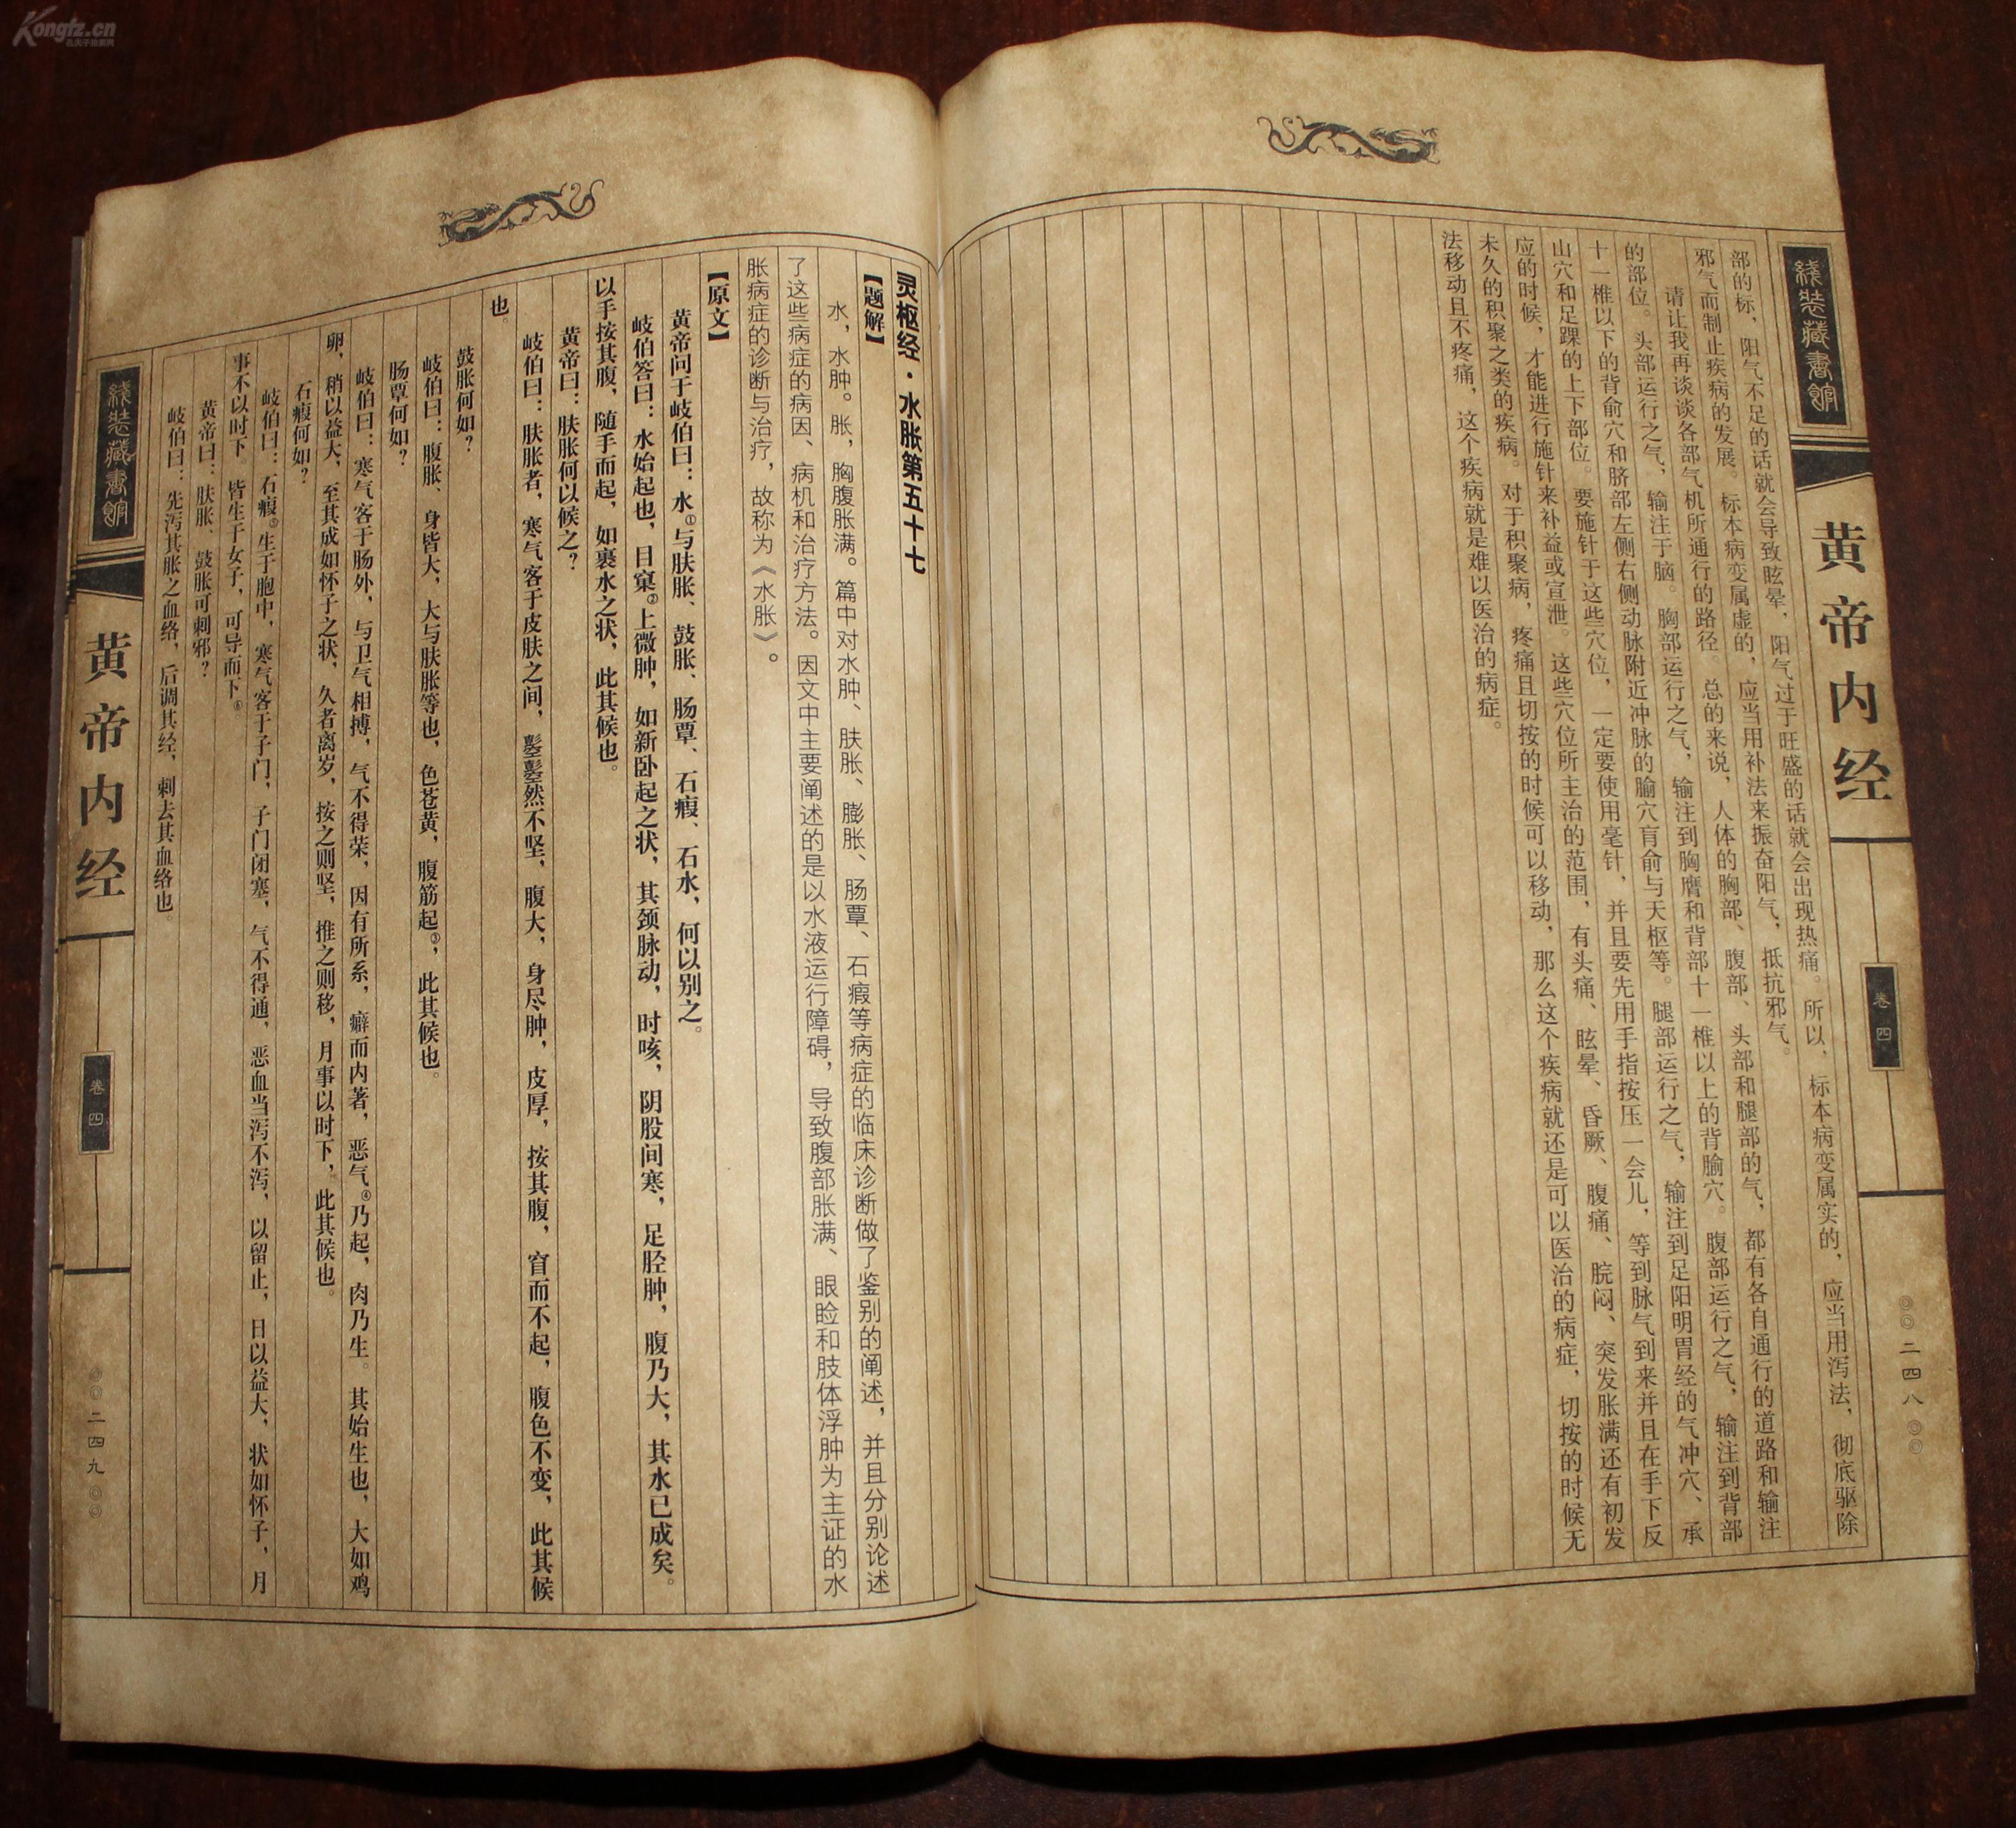 Kongfz.cn
孔夫子旧书网
线装藏书馆
黄帝内经
卷四
二四八
部的标，阳气不足的话就会导致眩晕，阳气过于旺盛的话就会出现热痛。所以，标本病变属实的，应当用泻法，彻底驱除
邪气而制止疾病的发展。标本病变属虚的，应当用补法来振奋阳气，抵抗邪气。
请让我再谈谈各部气机所通行的路径。总的来说，人体的胸部、腹部、头部和腿部的气，都有各自通行的道路和输注
的部位。头部运行之气，输注于脑。胸部运行之气，输注到胸膺和背部十一椎以上的背腧穴。腹部运行之气，输注到背部
十一椎以下的背俞穴和脐部左侧右侧动脉附近冲脉的腧穴肓俞与天枢等。腿部运行之气，输注到足阳明胃经的气冲穴、承
山穴和足踝的上下部位。要施针于这些穴位，一定要使用毫针，并且要先用手指按压一会儿，等到脉气到来并且在手下反
应的时候，才能进行施针来补益或宣泄。这些穴位所主治的范围，有头痛、眩晕、昏厥、腹痛、脘闷、突发胀满还有初发
未久的积聚之类的疾病。对于积聚病，疼痛且切按的时候可以移动，那么这个疾病就还是可以医治的病症，切按的时候无
法移动且不疼痛，这个疾病就是难以医治的病症。
灵枢经·水胀第五十七
【题解】
水，水肿。胀，胸腹胀满。篇中对水肿、肤胀、膨胀、肠覃、石瘕等病症的临床诊断做了鉴别的阐述，并且分别论述
了这些病症的病因、病机和治疗方法。因文中主要阐述的是以水液运行障碍，导致腹部胀满、眼睑和肢体浮肿为主证的水
胀病症的诊断与治疗，故称为《水胀》。
【原文】
黄帝问于岐伯曰：水①与肤胀、鼓胀、肠覃、石瘕、石水，何以别之。
岐伯答曰：水始起也，目窠②上微肿，如新卧起之状，其颈脉动，时咳，阴股间寒，足胫肿，腹乃大，其水已成矣。
以手按其腹，随手而起，如裹水之状，此其候也。
黄帝曰：肤胀何以候之？
岐伯曰：肤胀者，寒气客于皮肤之间，㪔㪔然不坚，腹大，身尽肿，皮厚，按其腹，窅而不起，腹色不变，此其候
也。
鼓胀何如？
岐伯曰：腹胀、身皆大，大与肤胀等也，色苍黄，腹筋起③，此其候也。
肠覃何如？
岐伯曰：寒气客于肠外，与卫气相搏，气不得荣，因有所系，癖而内著，恶气④乃起，肉乃生。其始生也，大如鸡
卵，稍以益大，至其成如怀子之状，久者离岁，按之则坚，推之则移，月事以时下，此其候也。
石瘕何如？
岐伯曰：石瘕⑤生于胞中，寒气客于子门，子门闭塞，气不得通，恶血当泻不泻，以留止，日以益大，状如怀子，月
事不以时下。皆生于女子，可导而下⑥。
黄帝曰：肤胀、鼓胀可刺邪？
岐伯曰：先泻其胀之血络，后调其经，刺去其血络也。
线装藏书馆
黄帝内经
卷四
二四九